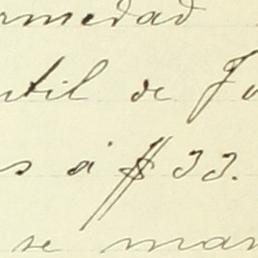 rmedad
ntil de Jo
s á $ 33.
se man